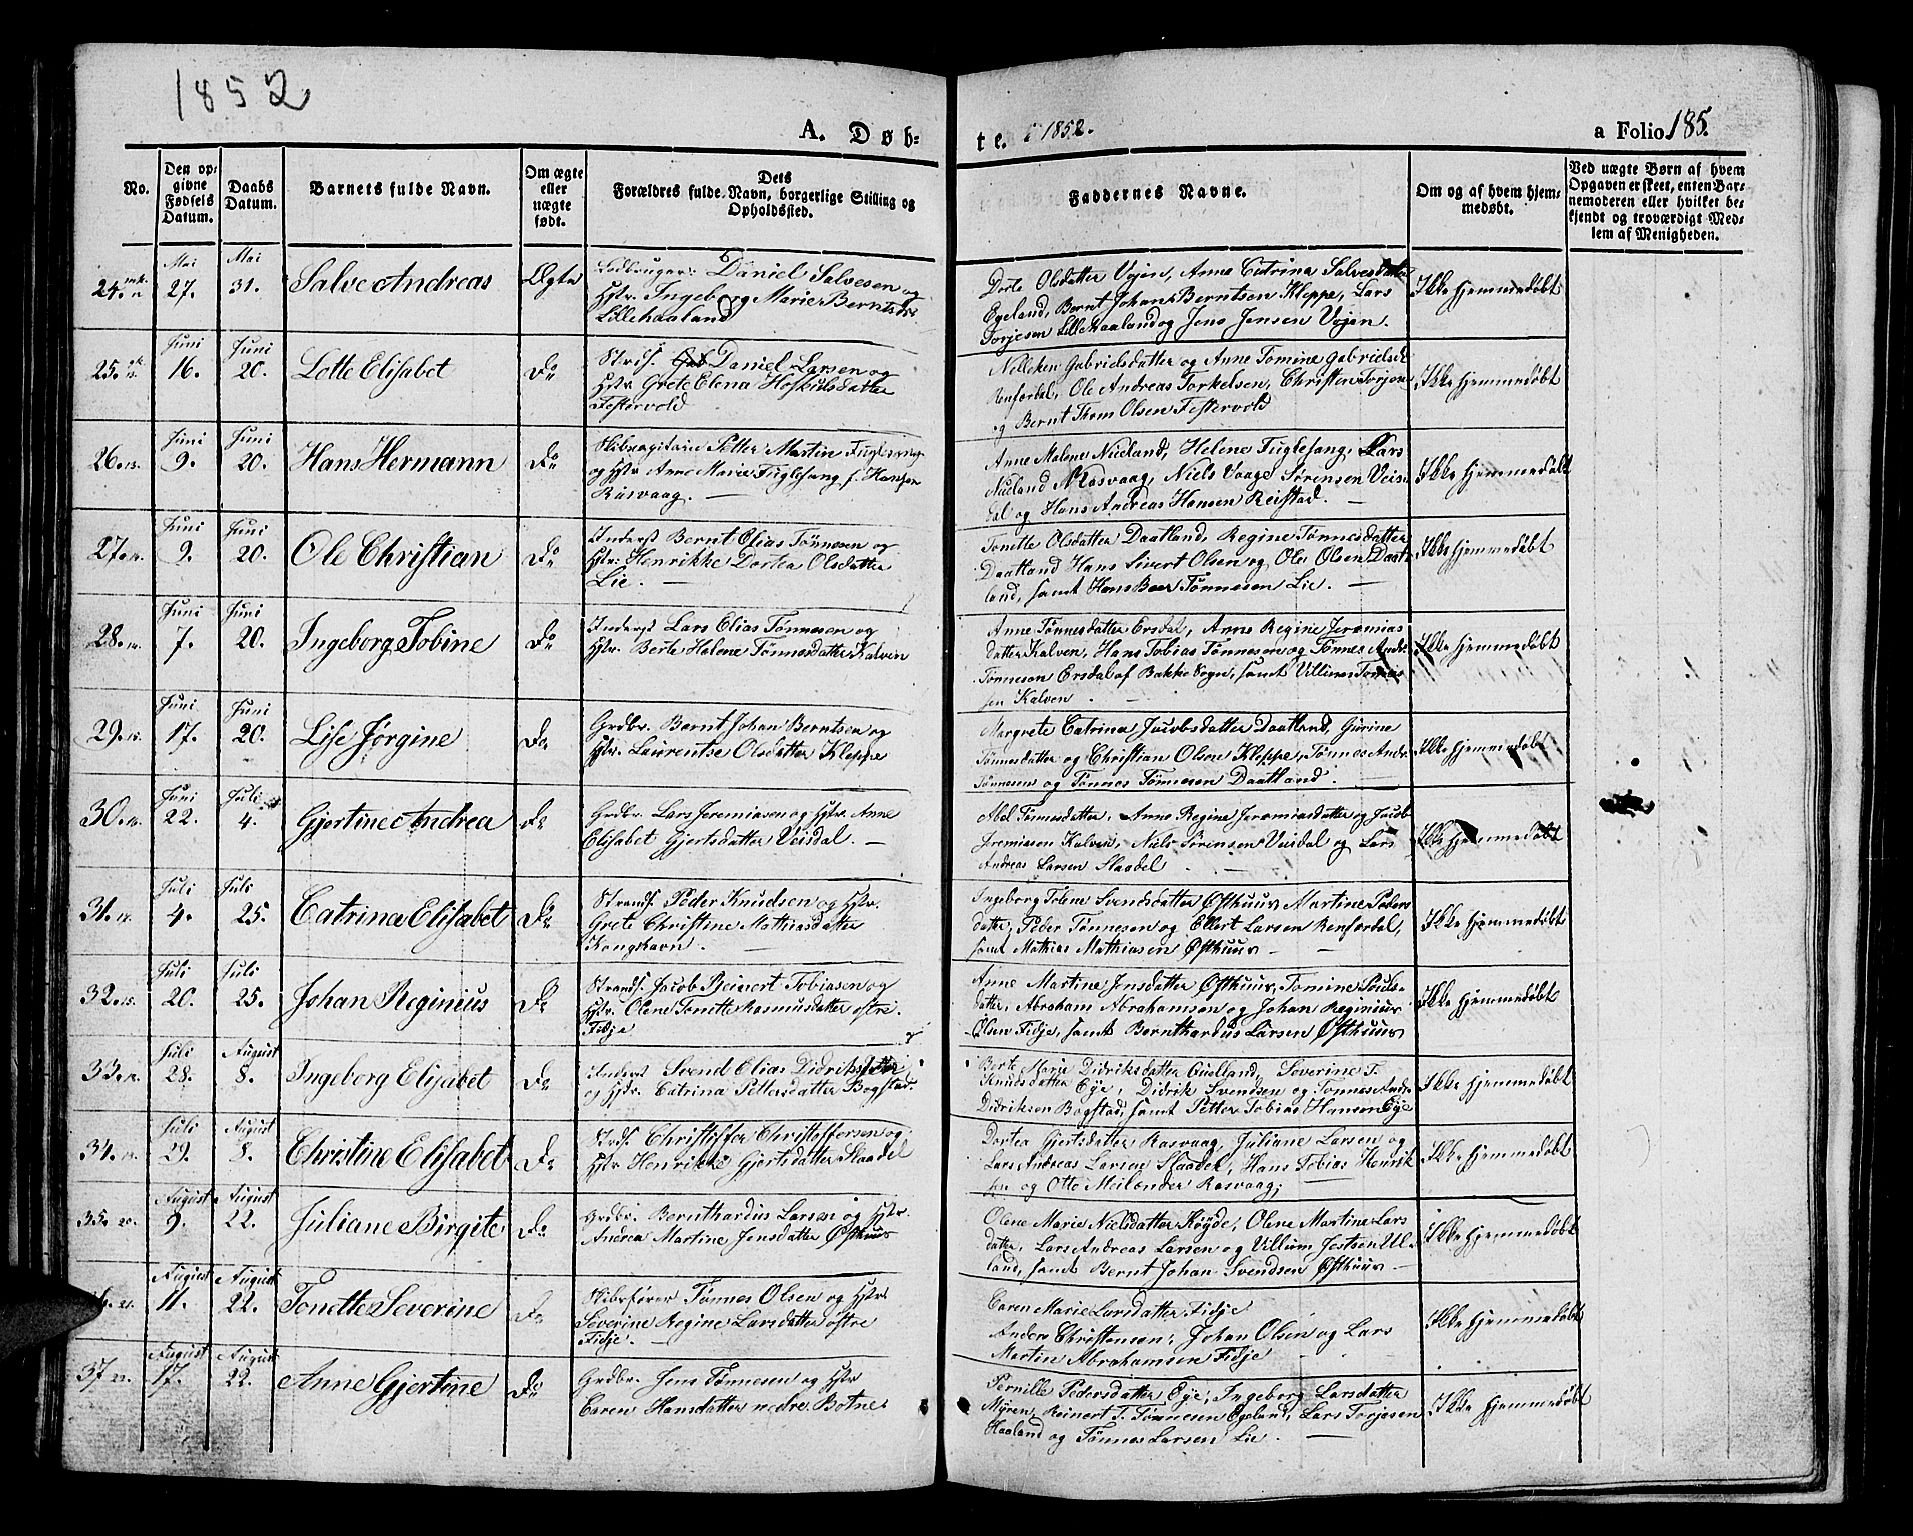 1852
A. Døb-
te. 1852.
a Folio 185.
No.
Den op-
givne
Fødsels
Datum.
Daabs
Datum.
Barnets fulde Navn.
Om ægte
eller
uægte
født.
Dets
Forældres fulde Navn, borgerlige Stilling og
Opholdssted.
Faddernes Navne.
Om og af hvem hjem-
medøbt.
Ved uægte Børn af hvem
Opgaven er skeet, enten Bar-
nemoderen eller hvilket be-
kjendt og troværdigt Med-
lem af Menigheden.
24.
Mai
27.
Mai
31.
Salve Andreas
Ægte
Ledbruger: Daniel Salvesen og
Hstr. Ingeborg Marie Berntsdr
Lillehaaland
Dorte Olsdatter Vejen, Anne Catrina Salvesdatter
Egeland, Bernt Johan Berntsen Kleppe, Lars
Torjesen Lillehaaland og Jens Jensen Vejen.
Ikke hjemmedøbt
25.
Juni
16.
Juni
20.
Lotte Elisabet
Do
Daniel Larsen og
Hstr Grete Elena Hoskildsdatter
Festervold
Nelleken Gabrielsdatter og Anne Tomine Gabrielsd
Renfordal, Ole Andreas Torkelsen, Christen Torjesen
og Bernt Thom Olsen Festervold
Ikke hjemmedøbt
26.
Juni
9.
Juni
20.
Hans Hermann
Do
Skibscapitain Petter Martin Fuglesang
og Hstr Anne Marie Fuglesang f. Hansen
Rasvaag. —
Anne Malene Nueland, Helene Fuglesang, Lars
Nueland Rasvaag, Niels Vaage Sørensen Veis-
dal og Hans Andreas Hansen Reistad. —
Ikke hjemmedøbt
27.
Juni
9.
Juni
20.
Ole Christian
Do
Inderst Bernt Elias Tønnesen og
Hstr. Henrikke Dortea Olsdatter
Lie. —
Tonette Olsdatter Daatland, Regine Tønnesdatter
Daatland Hans Sivert Olsen og Ole Olsen Daat-
land, samt Hans Beer Tønnesen Lie. —
Ikke hjemmedøbt
28.
Juni
7.
Juni
20.
Ingeborg Tobine
Do
Inderst Lars Elias Tønnesen og
Hstr. Berte Helene Tønnesdatter Kalven
Anne Tønnesdatter Ersdal, Anne Regine Jeremias
datter Kalven, Hans Tobias Tønnesen og Tønnes Andr
Tønnesen Ersdal af Bakke Sogn, samt Villum Tønnes
sen Kalven
Ikke hjemmedøbt
29.
Juni
17.
Juni
20.
Lise Jørgine
Do
Grdbr. Bernt Johan Berntsen og
Hstr. Laurentse Olsdatter Kleppe
Margrete Catrina Jacobsdatter Daatland, Gurine
Tønnesdatter og Christian Olsen Kleppe, Tønnes Andr.
Tønnesen og Tønnes Tønnesen Daatland.
Ikke hjemmedøbt
30.
Juni
22.
Juli
4.
Gjertine Andrea
Do
Grdbr. Lars Jeremiasen og Hstr. Anne
Elisabet Gjertsdatter Veisdal. —
Abel Tønnesdatter, Anne Regine Jeremiasdatter og Jacob
Jeremiasen Kalven, Niels Sørensen Veisdal og Lars
Andreas Larsen Slaadel
Ikke hjemmedøbt
31.
Juli
4.
Juli
25.
Catrine Elisabet
Do
Strands. Peder Knudsen og Hstr.
Grete Christine Mathiasdatter
Kongshavn. —
Ingeborg Tolene Svendsdatter Øfthuus Martine Peders
datter, Peder Tønnesen og Ellert Larsen Renfordal,
samt Mathias Mathiasen Øfthuus —
Ikke hjemmedøbt
32.
Juli
20.
Juli
25.
Johan Reginius
Do
Strands. Jacob Reinert Tobiasen og
Hstr. Olene Tonette Rasmusdatter østre.
Fidje
Anne Martine Jensdatter Øfthuus, Tomine Pouls-
datter, Abraham Abrahamsen og Johan Reginius
Olsen Fidje, samt Bernthardus Larsen Øfthuus
Ikke hjemmedøbt
33.
Juli
28.
August
8.
Ingeborg Elisabet
Do
Inderst Svend Elias Didriksen
og Hstr. Catrina Pettersdatter Bogstad.
Berte Marie Didriksdatter Quelland, Severine T.
Knudsdatter Eye, Didrik Svendsen og Tønnes Andr
Didriksen Bogstad, samt Petter Tobias Hansen Eye
Ikke hjemmedøbt
34.
Juli
29.
August
8.
Christine Elisabet
Do
Strds. Christoffer Christoffersen og
Hstr Henrikke Gjertsdatter Slaadel
Dortea Gjertsdatter Rasvaag, Juliane Larsen og
Lars Andreas Larsen Slaadel, Hans Tobias Henrik
sen og Otto Meilænder Rasvaag;
Ikke hjemmedøbt
35.
August
9.
August
22.
Juliane Birgite
Do
Grdbr. Bernthardus Larsen og Hstr.
Andrea Martine Jensdatter Øfthuus
Olene Marie Nielsdatter Køyde, Olene Martine Lars
datter, Lars Andreas Larsen og Villum Jostsen Ul-
land, samt Bernt Johan Svendsen Øfthuus —
Ikke hjemmedøbt
August
11.
August
22.
Tonette Severine
Do
Skibsfører Tønnes Olsen og Hstr
Severine Regine Larsdatter østre
Fidje. —
Caren Marie Larsdatter Fidje
Anders Christensen, Johan Olsen og Lars
Martin Abrahamsen Fidje
Ikke hjemmedøbt
37
August
17.
August
22.
Anne Gjertine
Do
Grdbr. Jens Tønnesen og Hstr
Caren Hansdatter nedre Botne
Pernille Pedersdatter Eye, Ingeborg Larsdatter
Myren, Reinert T. Tønnesen Egeland, Lars Torjesen
Haaland og Tønnes Larsen Lie. —
Ikke hjemmedøbt